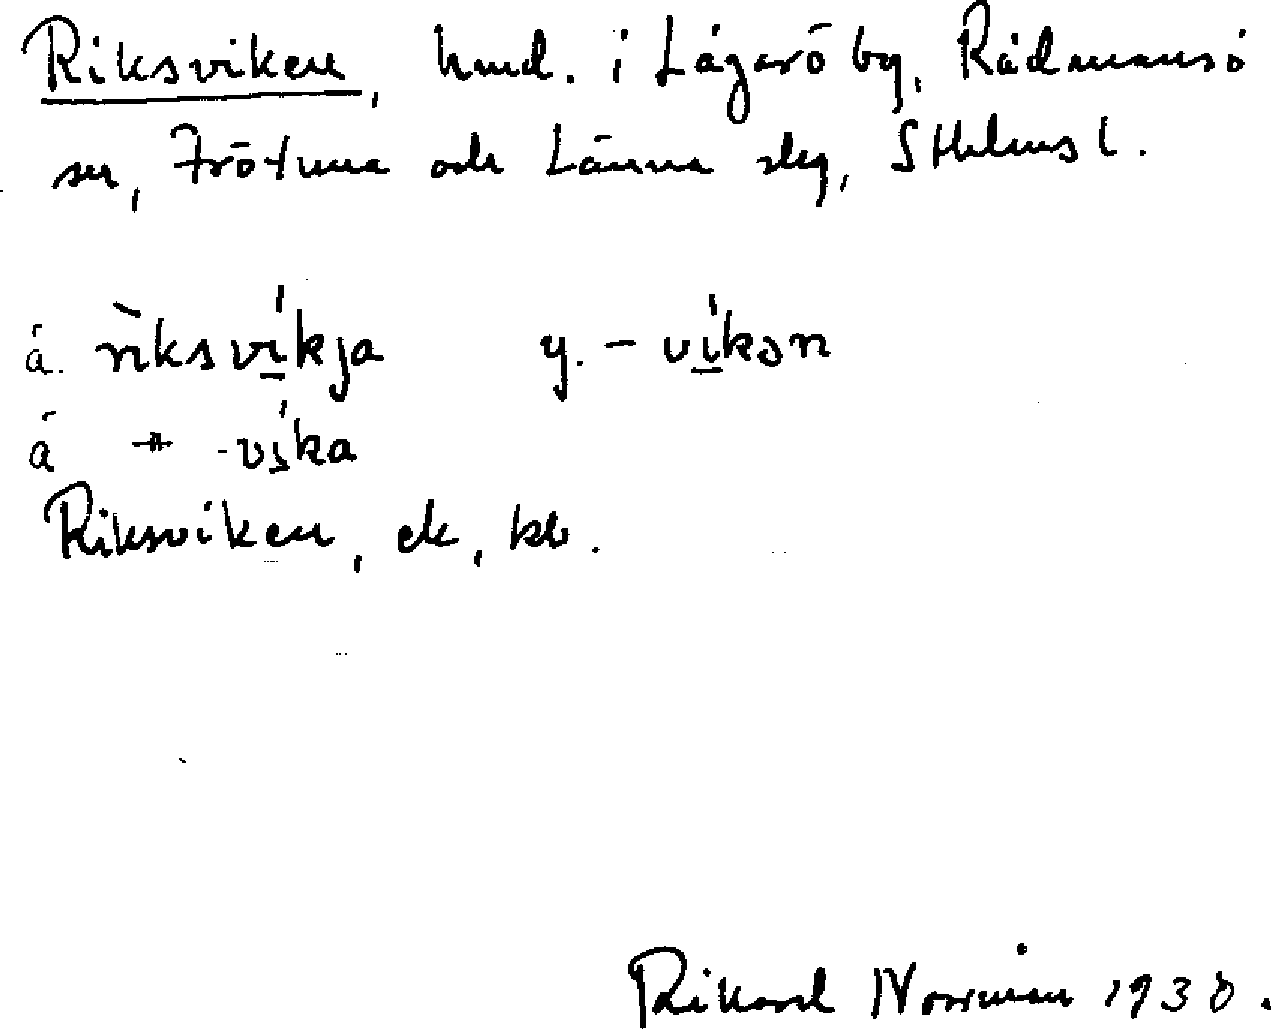 Riksviken, hmd. i Lågarö by, Rådmansö
sn, Frötuna och Länna skg, Sthlms l.
ä. riksvikja y. - vikən
ä + -vika
Riksviken, ek, kb.
Rikard Norrman 1930.